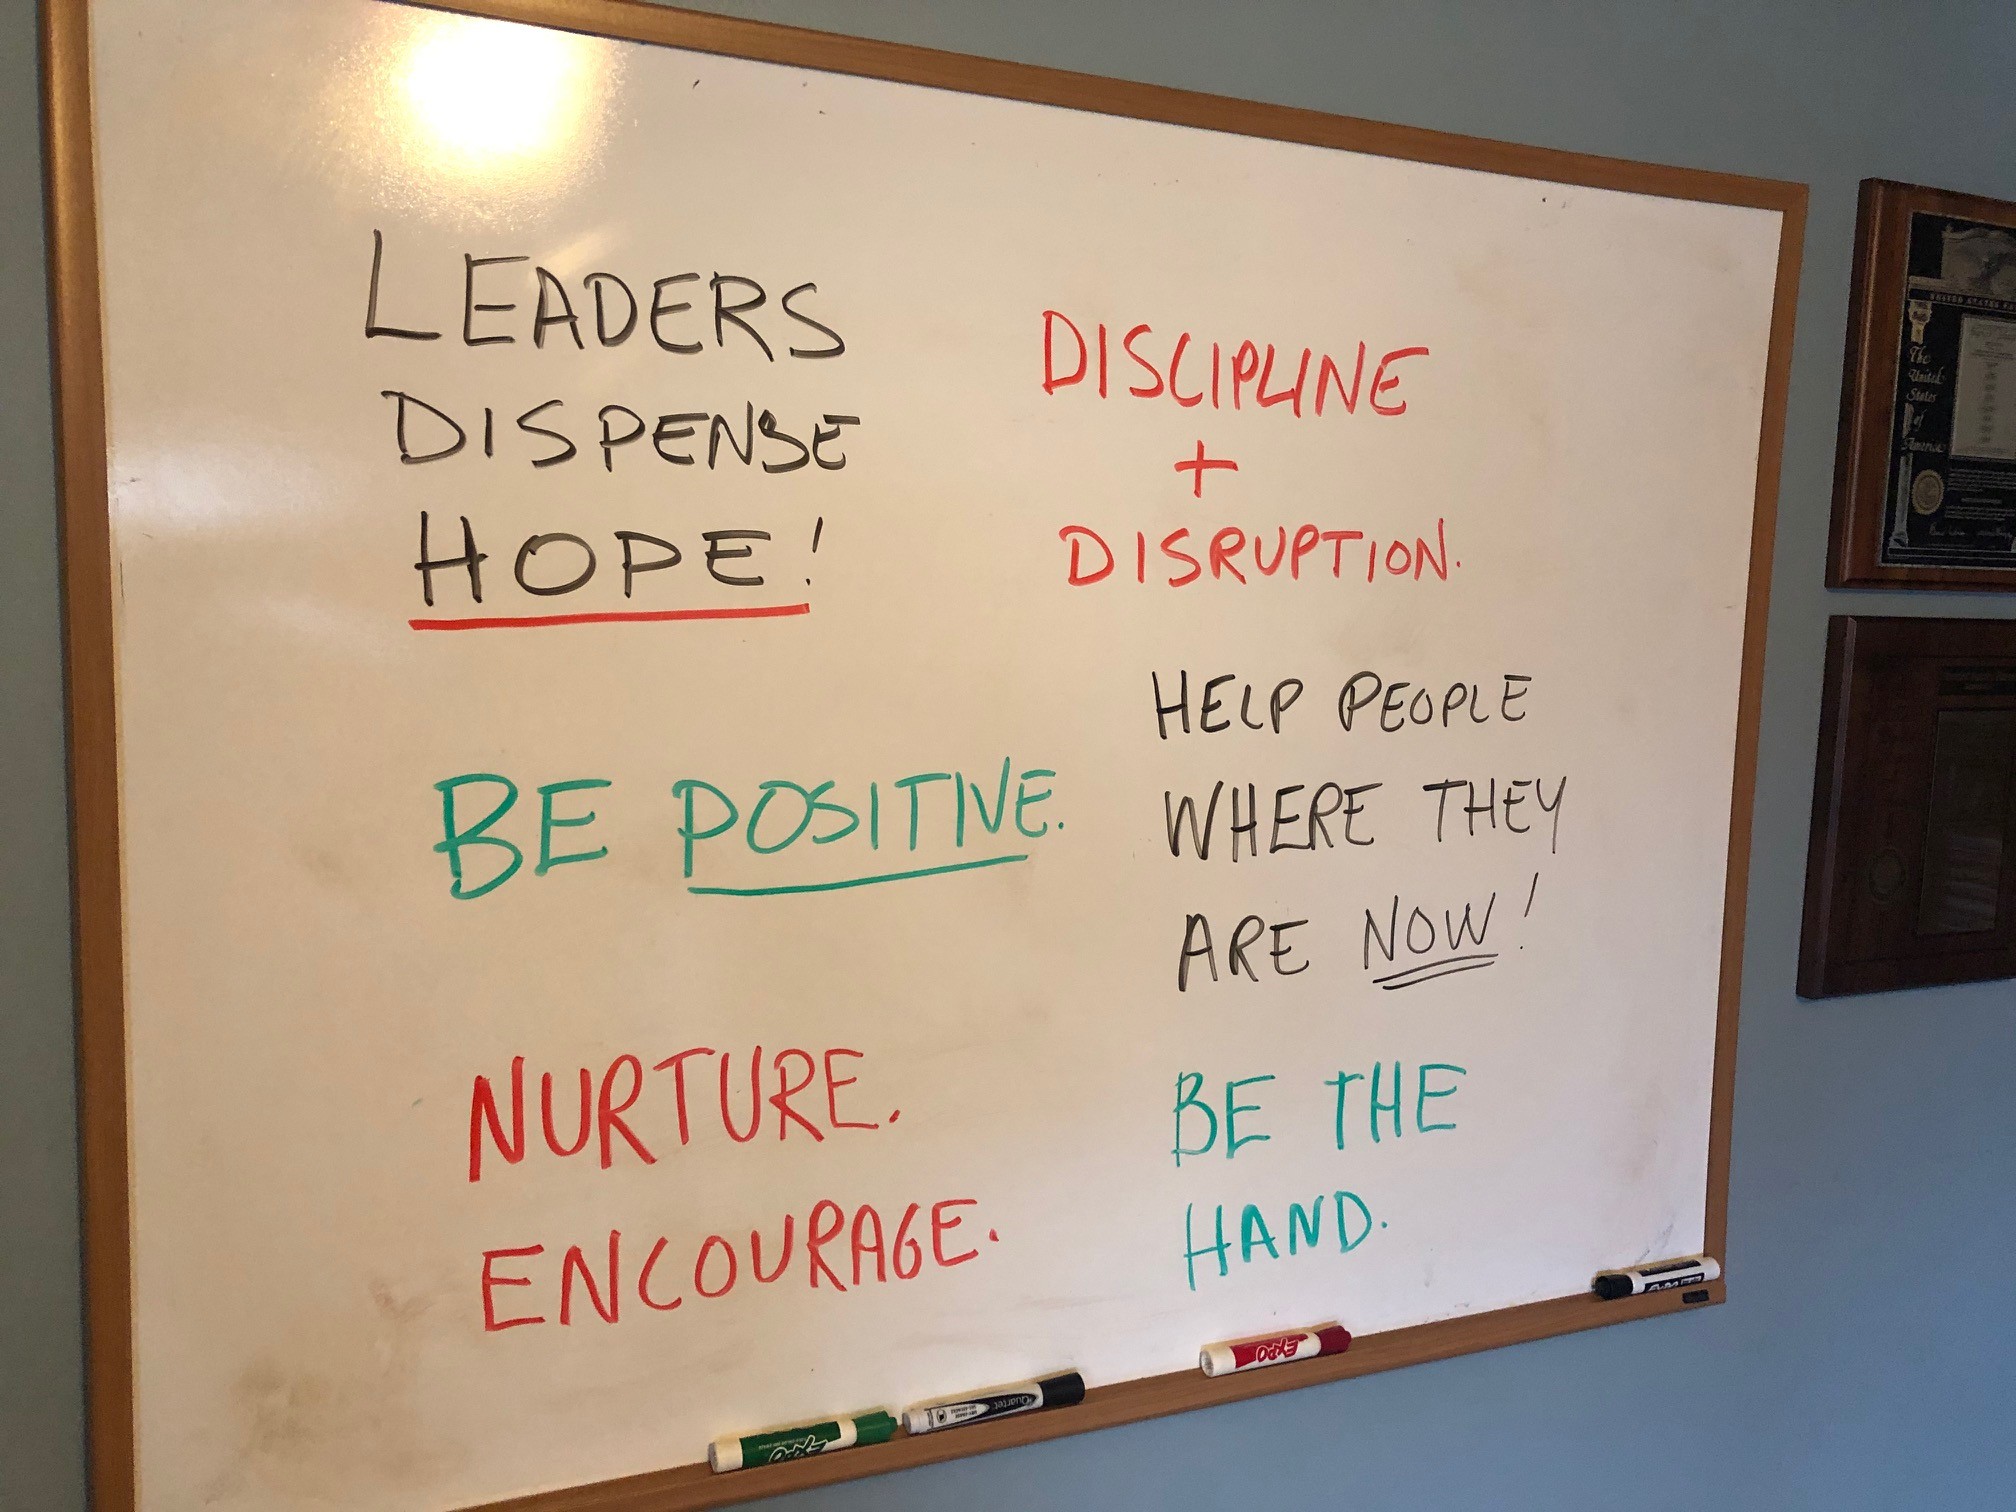 LEADERS
DISPENSE
HOPE!
DISCIPLINE
+
DISRUPTION.
BE POSITIVE.
HELP PEOPLE
WHERE THEY
ARE NOW!
NURTURE.
ENCOURAGE.
BE THE
HAND.
The
United
States
of
America
EXPO
Quartet
EXPO
EXPO